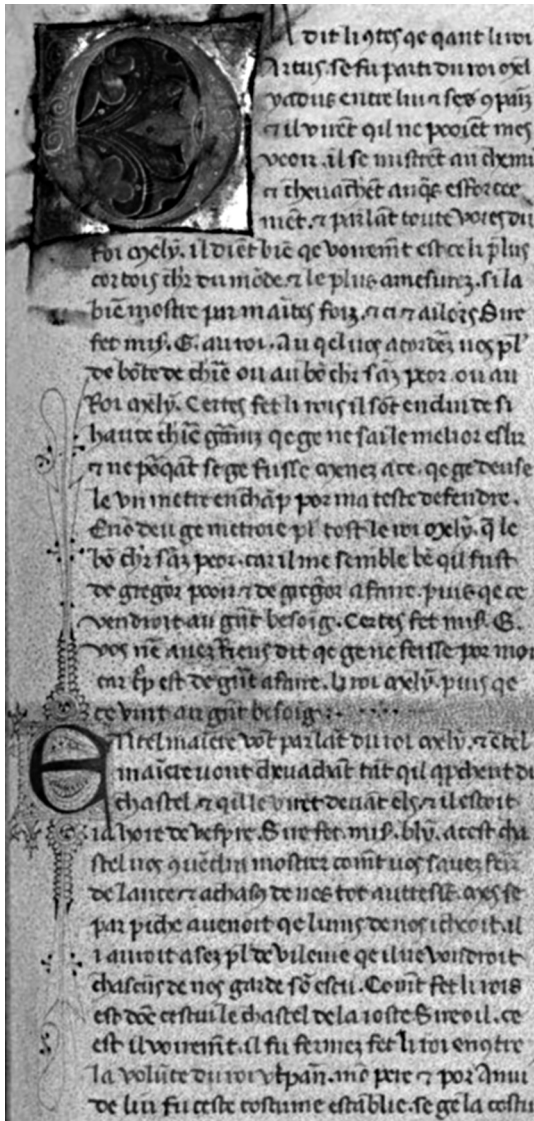 O R dit li 9tes qe qant li roi
Artus. se fu parti du roi mel
yadus entre lui ⁊ ses 9paiñz
⁊ il virẽt qil ne poiẽt mes
veoir. il se mistrẽt au chemi
⁊ chevachẽt auq̃s esforcee
mẽt. ⁊ parlãt toute voies du
Roi mely᷒. il diẽt biẽ qe voiremẽt est ce li plus
cortois ch'r du mõde. ⁊ le plus amesurez. si la
biẽ mostre par maĩtes foiz. ⁊ ci ⁊ ailors Sire
fet mis̃. G. au roi. Au qel uos acordez uos pl'
de bõte de ch'ie ou au bõ ch'r sãz peor. ou au
Roi mely᷒. Certes fet li rois il sõt endui de si
haute ch'ie garniz qe ge ne sai le meillor eslir
⁊ ne põqãt se ge fusse menez a ce. qe ge deuse
le vn metre en chãp por ma teste defendre.
En nõ deu ge metroie pl' tost le roi mely᷒. q̃ le
bõ ch'r sãz peor. car il me semble bẽ qil fust
de greg̃or pooir ⁊ de greg̃or afaire. puis qe ce
vendroit au g̃nt besoig. Certes fet mis̃. G.
vos nẽ auez riens dit qe ge ne feisse por moi
car t̃p est de g̃nt afaire. li roi mely᷒. puis qe
ce vint au g̃nt besoig :
EN tel maĩere võt parlãt du roi mely᷒. ⁊ ẽ tel
maĩere uont chevachãt tãt qil ap̃chent du
chastel ⁊ qil le virẽt devãt els ⁊ il estoit
ia hore de vespre. Sire fet mis̃. bly᷒. a cest cha
stel uos 9uẽdra mostrer comẽt uos sauez ferir
de lance ⁊ a chascũ de nos tot autresi. mes se
par pechie auenoit qe luns de nos i cheoit. il
i auroit asez pl' de vilenie qe il ne voudroit
chascũs de nos garde sõ escu. Comẽt fet li rois
est dõc cestui le chastel de la ioste Sire oil. ce
est il voiremẽt. il fu fermez fet li roi en 9tre
la volũte du roi vt̃pan. mõ pere ⁊ por Anui
de lui fu ceste costume establie. se ge la costu